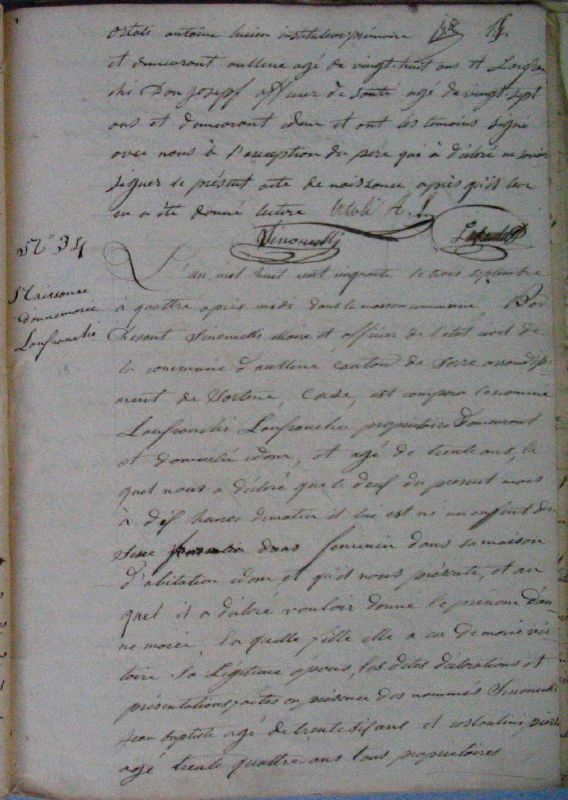 antoine lucien instituteur primaire
et demeurant aullene agé de vingt huit ans et Lanfran
chi Don Joseph officier de santé agé de vingt sept
ans et demeurant idem et ont les temoins signé
avec nous à l'exception du pere qui à déclaré ne savoir
signer le présent acte de naissance, après qu'il leur
en a été donné lecture
N° 34
Naissance
d'annemarie
Lanfranchi
L'an mil huit cent cinquante le trois septembre
à quattre après midi dans la maison commune, Par
devant Maire et officier de l'état civil de
la commune d'aullene canton de Serra arrondisse
ment de Sartene, Corse, est comparu le nommé
Lanfranchi proprietaire Demeurant
et domicilié idem, et agé de trente ans, le
quel nous a déclaré que le du present mois
à heures du matin il lui est né un enfant du
Sexe feminin dans sa maison
D'abitation idem et qu'il nous présente, et au
quel il a déclaré vouloir donne le prénom d'an
ne marie, la quelle fille elle a eu de marie vic
toire sa Légitime épouse, les dites déclarations et
présentations faites en présence des nommés
jean Baptiste agé de trente six ans et
agé trente quattre ans tous proprietaires